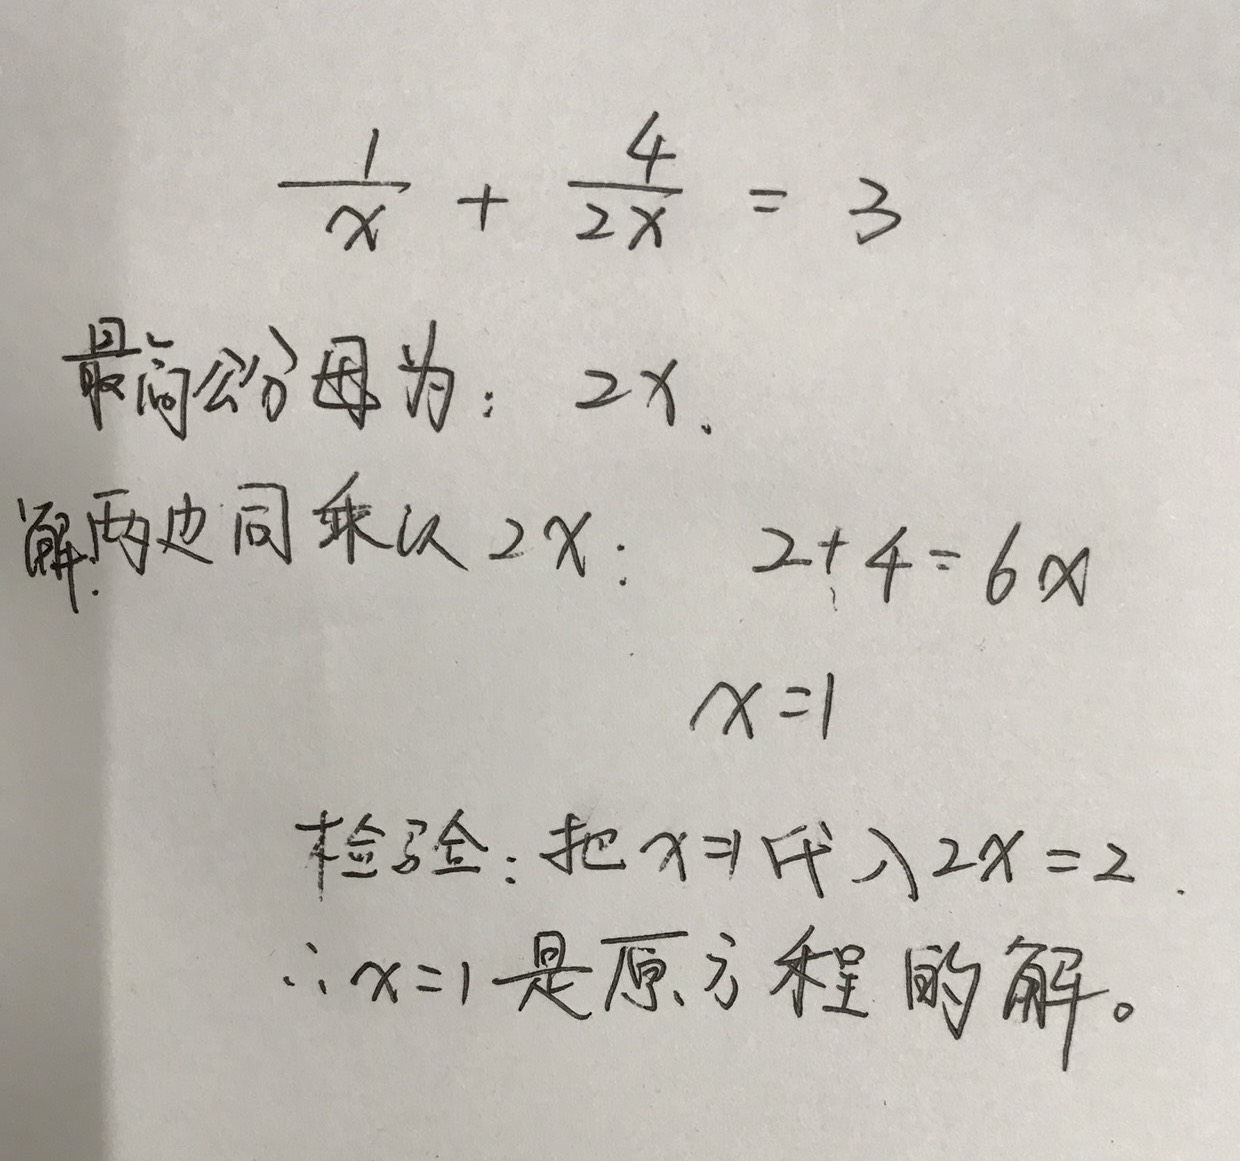 1/x + 4/2x = 3
最简公分母为: 2x.
解.两边同乘以2x: 2+4=6x
x=1
检验:把x=1代入2x=2.
∴x=1是原方程的解。